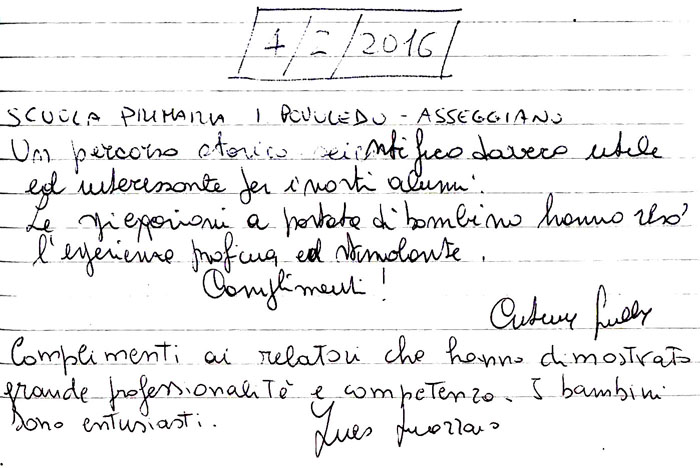 4/=/2016
SCUOLA PRIMARIA I POVOLEDO - ASSEGGIANO
Un percorso storico scientifico davvero utile
ed interessante per i nostri alunni.
Le spiegazioni a portata di bambino hanno reso
l'esperienza proficua ed stimolante.
Complimenti!
Complimenti ai relatori che hanno dimostrato
grande professionalità e competenza. I bambini
sono entusiasti.